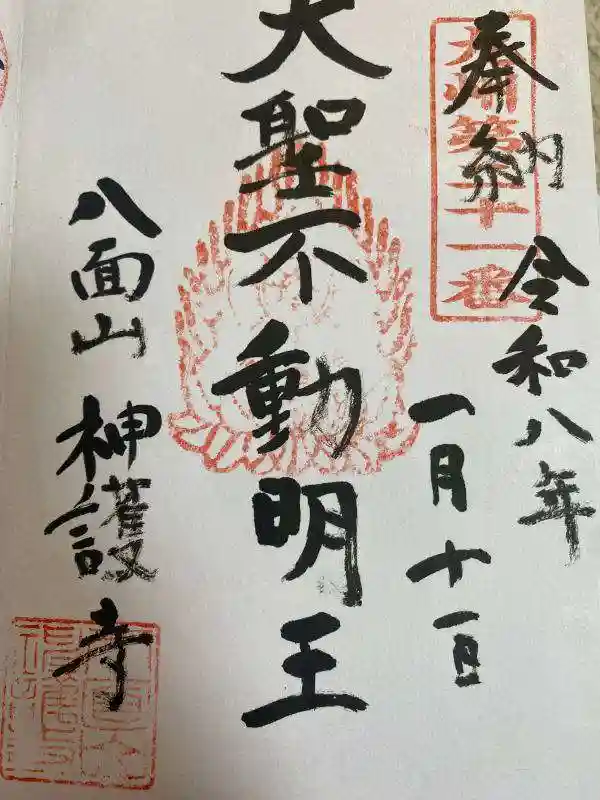 奉納
九州第二十一番
令和八年
一月十一日
大聖不動明王
八面山 神護寺